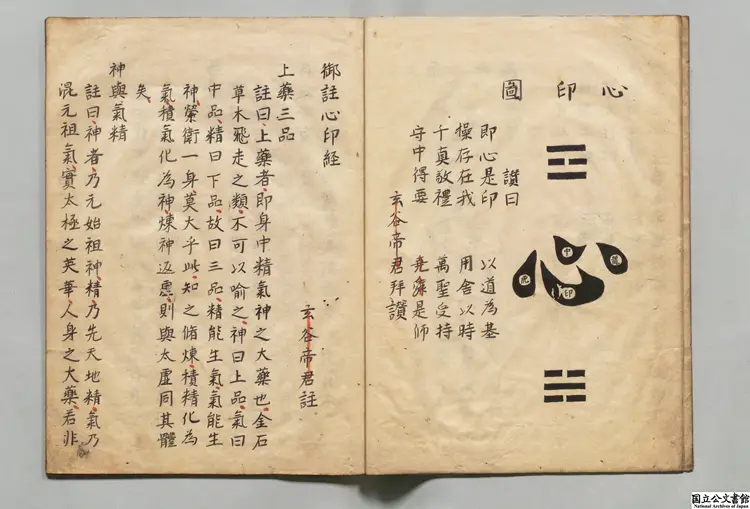 心印圖
中
印
讚曰
即心是印 以道為基
操存在我 用舍以時
千真敬禮 萬聖受持
守中得要 堯舜是師
玄谷帝君拜讚
御註心印經
玄谷帝君註
上藥三品
註曰上藥者即身中精氣神之大藥也金石
草木飛走之類不可以喻之神曰上品氣曰
中品精曰下品故曰三品精能生氣氣能生
神榮衛一身莫大乎此知之脩煉積精化為
氣積氣化為神煉神返虛則與太虛同其體
矣
神與氣精
註曰神者乃元始祖神精乃先天地精氣乃
混元祖氣實太極之英華人身之大藥若非
国立公文書館
National Archives of Japan